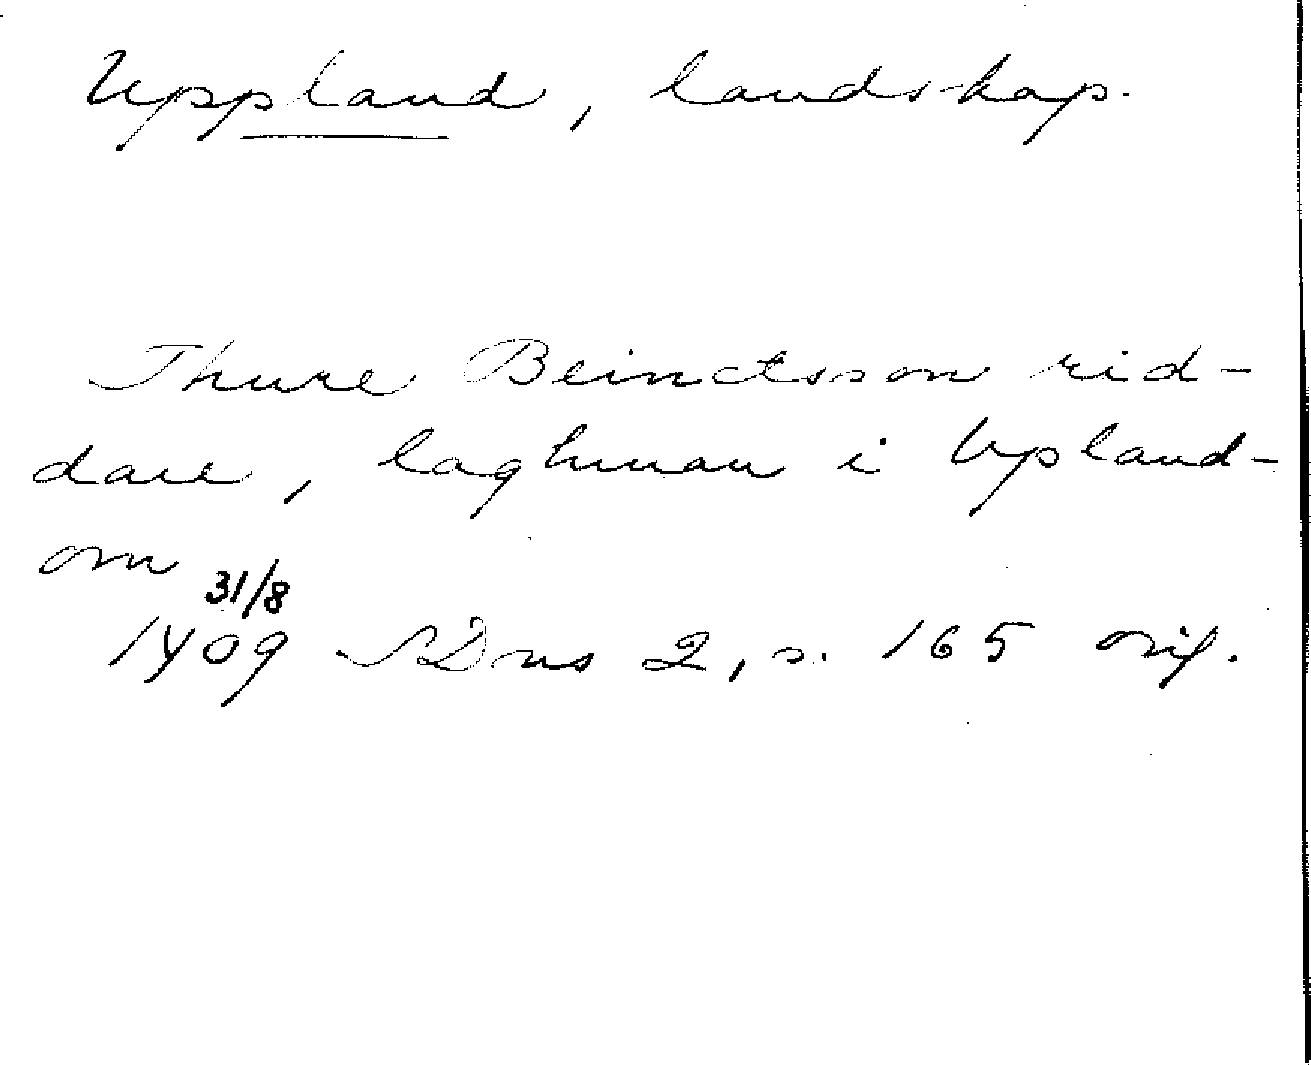 Uppland, landskap.
Thure Beinctsson rid-
dare, laghman i Upland-
om
31/8
1409 SDns 2, s. 165 orig.